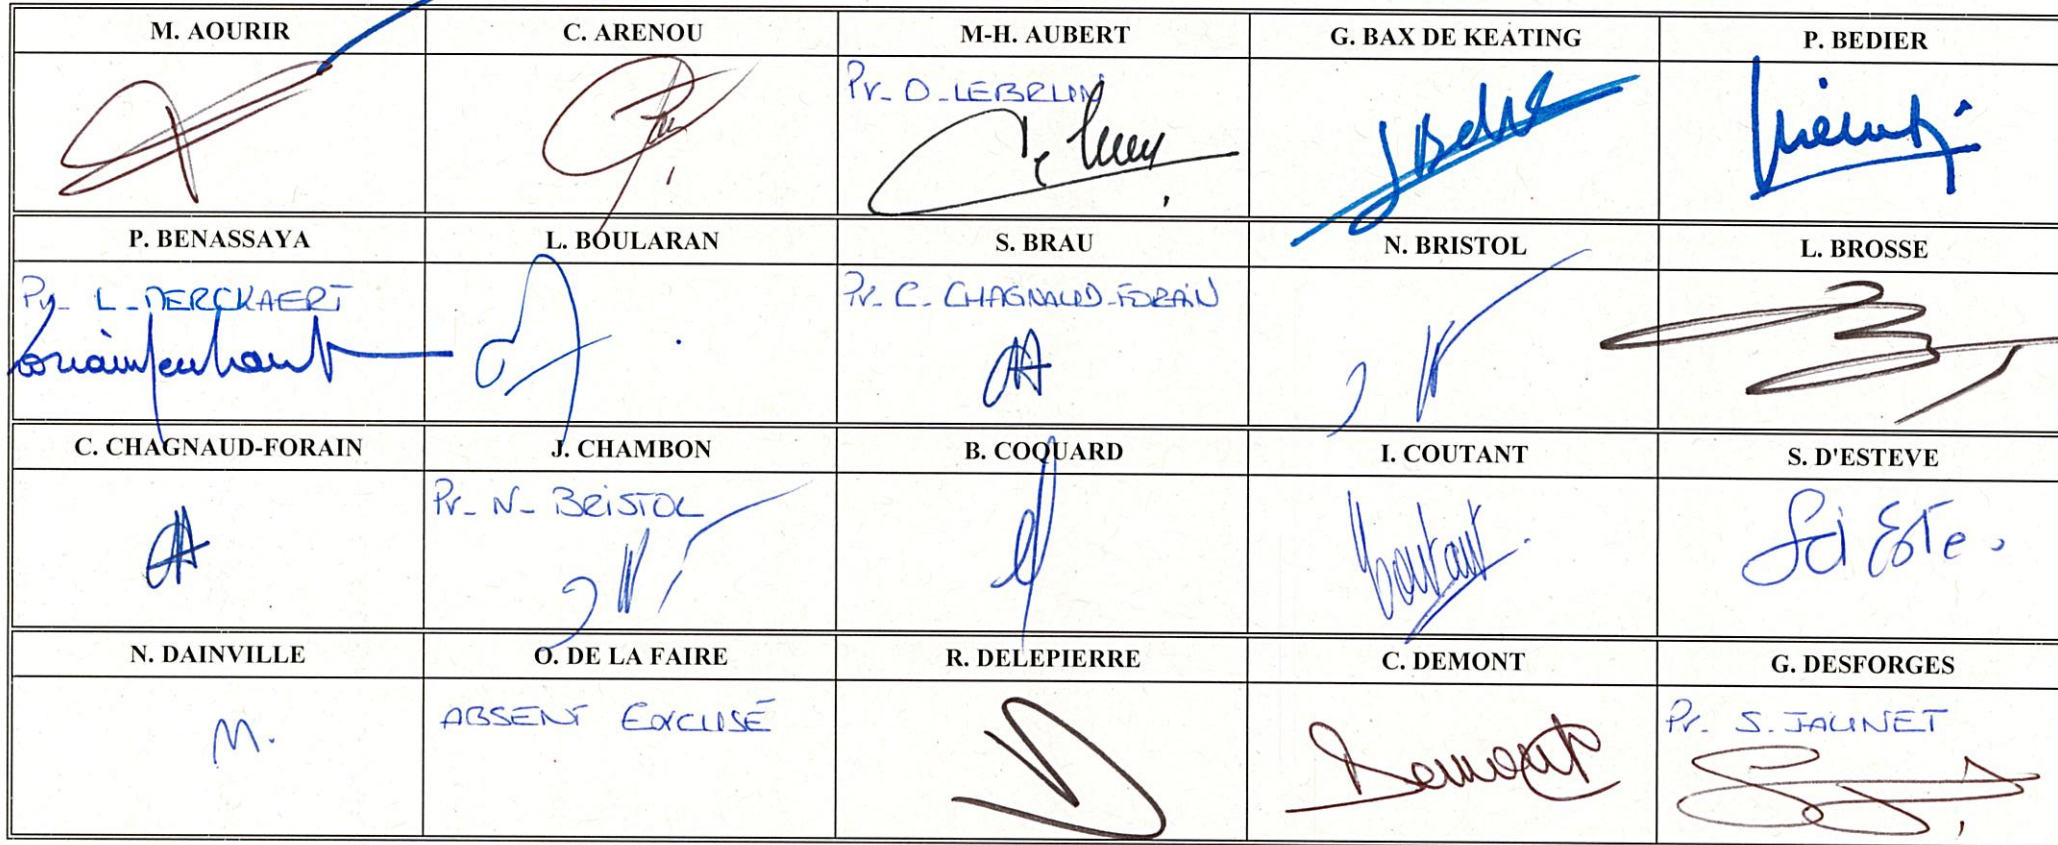 M. AOURIR C. ARENOU M-H. AUBERT G. BAX DE KEATING P. BEDIER
Pr_ D_LEBRUN
P. BENASSAYA L. BOULARAN S. BRAU N. BRISTOL L. BROSSE
Pr_ L_MERCKAERT Pr_ C_ CHAGNAUD-FORAIN
C. CHAGNAUD-FORAIN J. CHAMBON B. COQUARD I. COUTANT S. D'ESTEVE
Pr_ N_ BRISTOL
Coutant
N. DAINVILLE O. DE LA FAIRE R. DELEPIERRE C. DEMONT G. DESFORGES
M. ABSENT EXCUSÉ Demont Pr. S. JAUNET